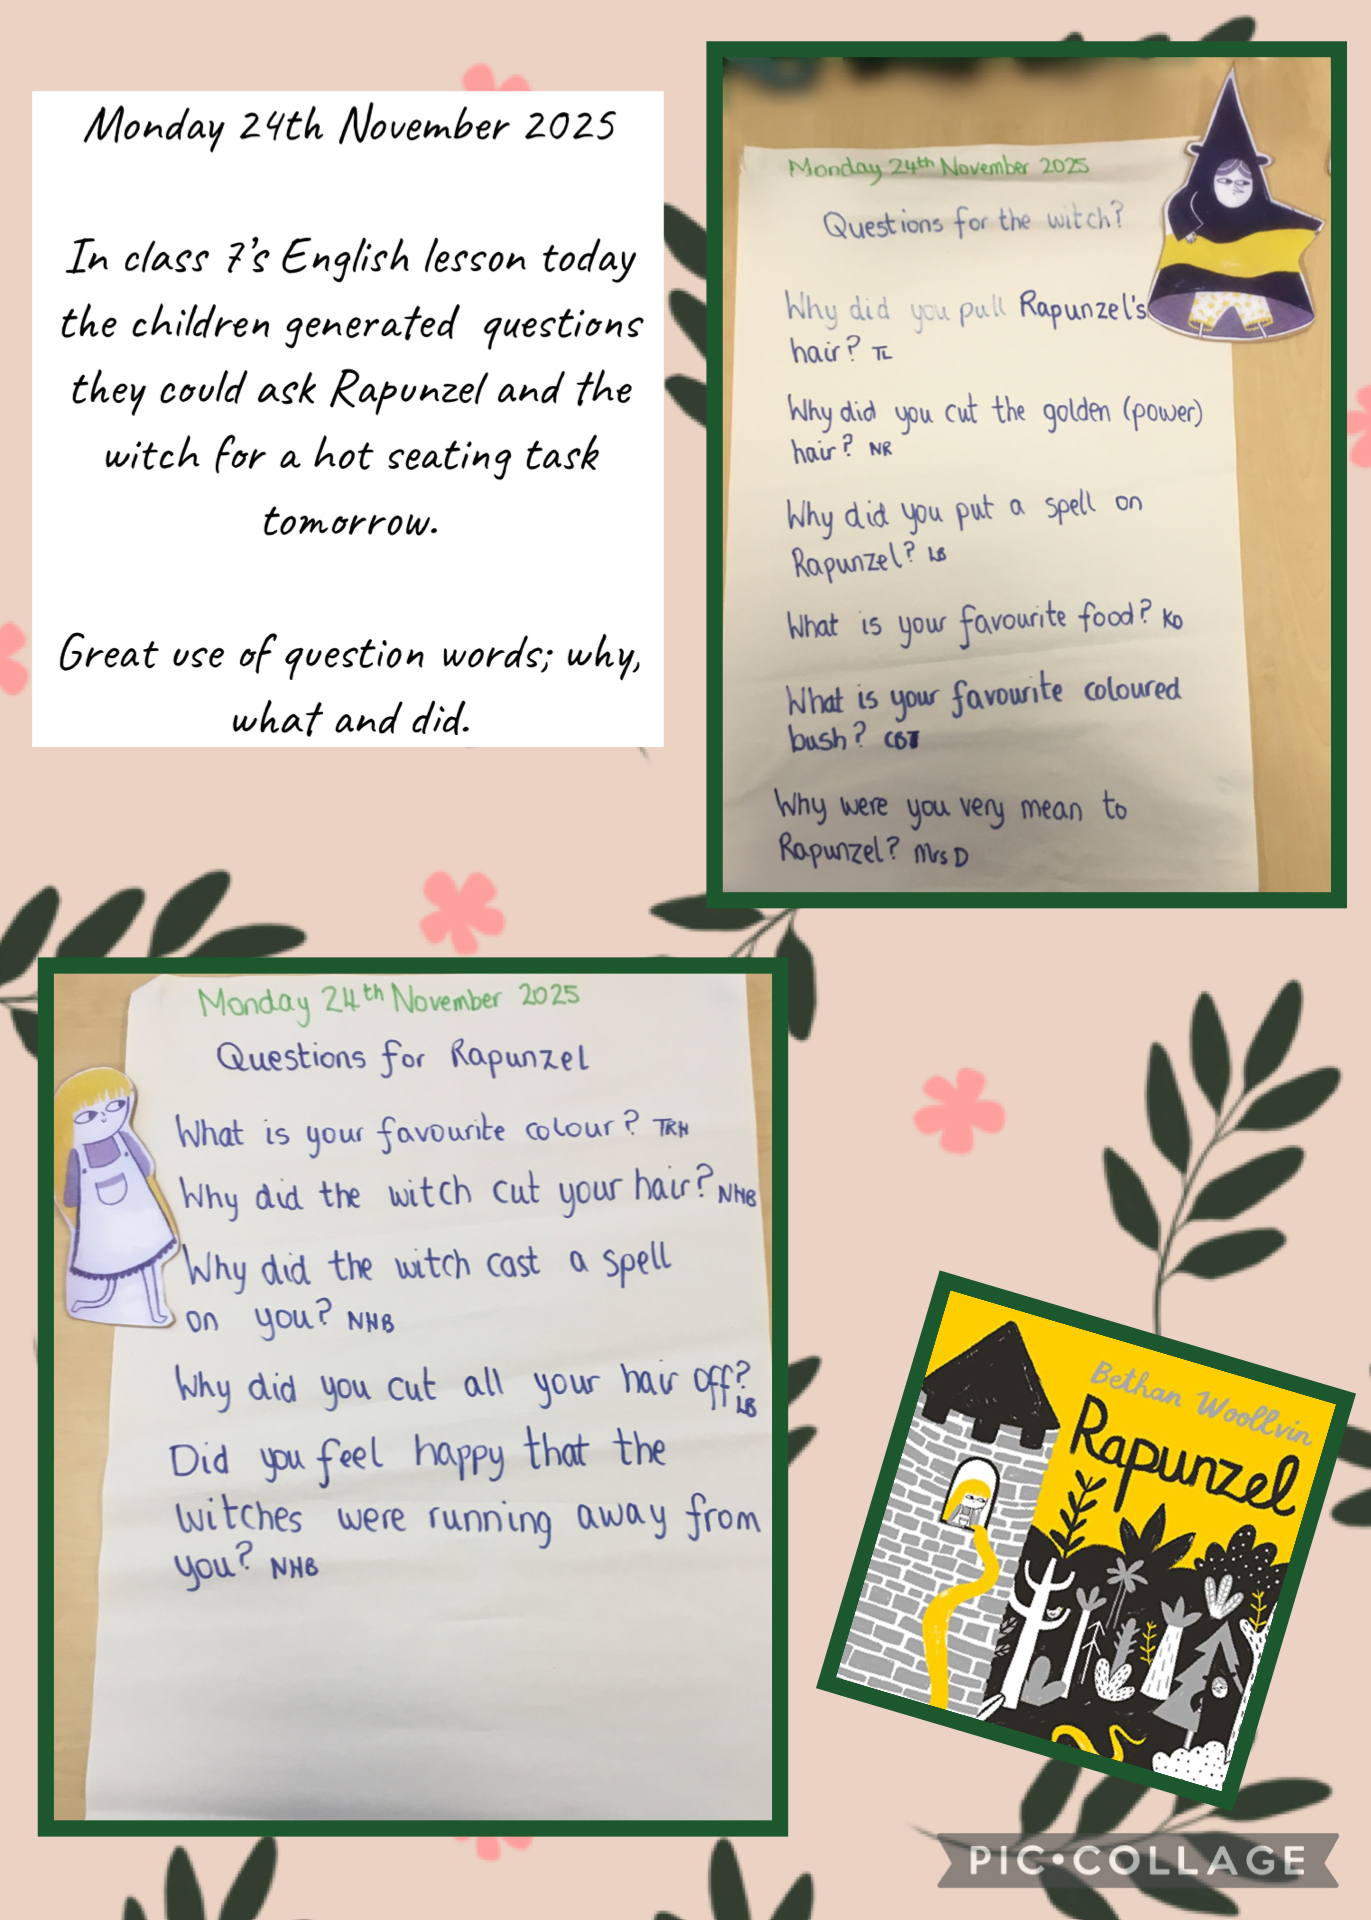 Monday 24th November 2025
In class 7's English lesson today
the children generated questions
they could ask Rapunzel and the
witch for a hot seating task
tomorrow.
Great use of question words; why,
what and did.
Monday 24th November 2025
Questions for the witch?
Why did you pull Rapunzel's
hair? TL
Why did you cut the golden (power)
hair? NR
Why did you put a spell on
Rapunzel? LB
What is your favourite food? KD
What is your favourite coloured
bush? CBT
Why were you very mean to
Rapunzel? Mrs D
Monday 24th November 2025
Questions for Rapunzel
What is your favourite colour? TRH
Why did the witch cut your hair? NHB
Why did the witch cast a spell
on you? NHB
Why did you cut all your hair off?
LB
Did you feel happy that the
witches were running away from
you? NHB
Bethan Woollvin
Rapunzel
PIC•COLLAGE